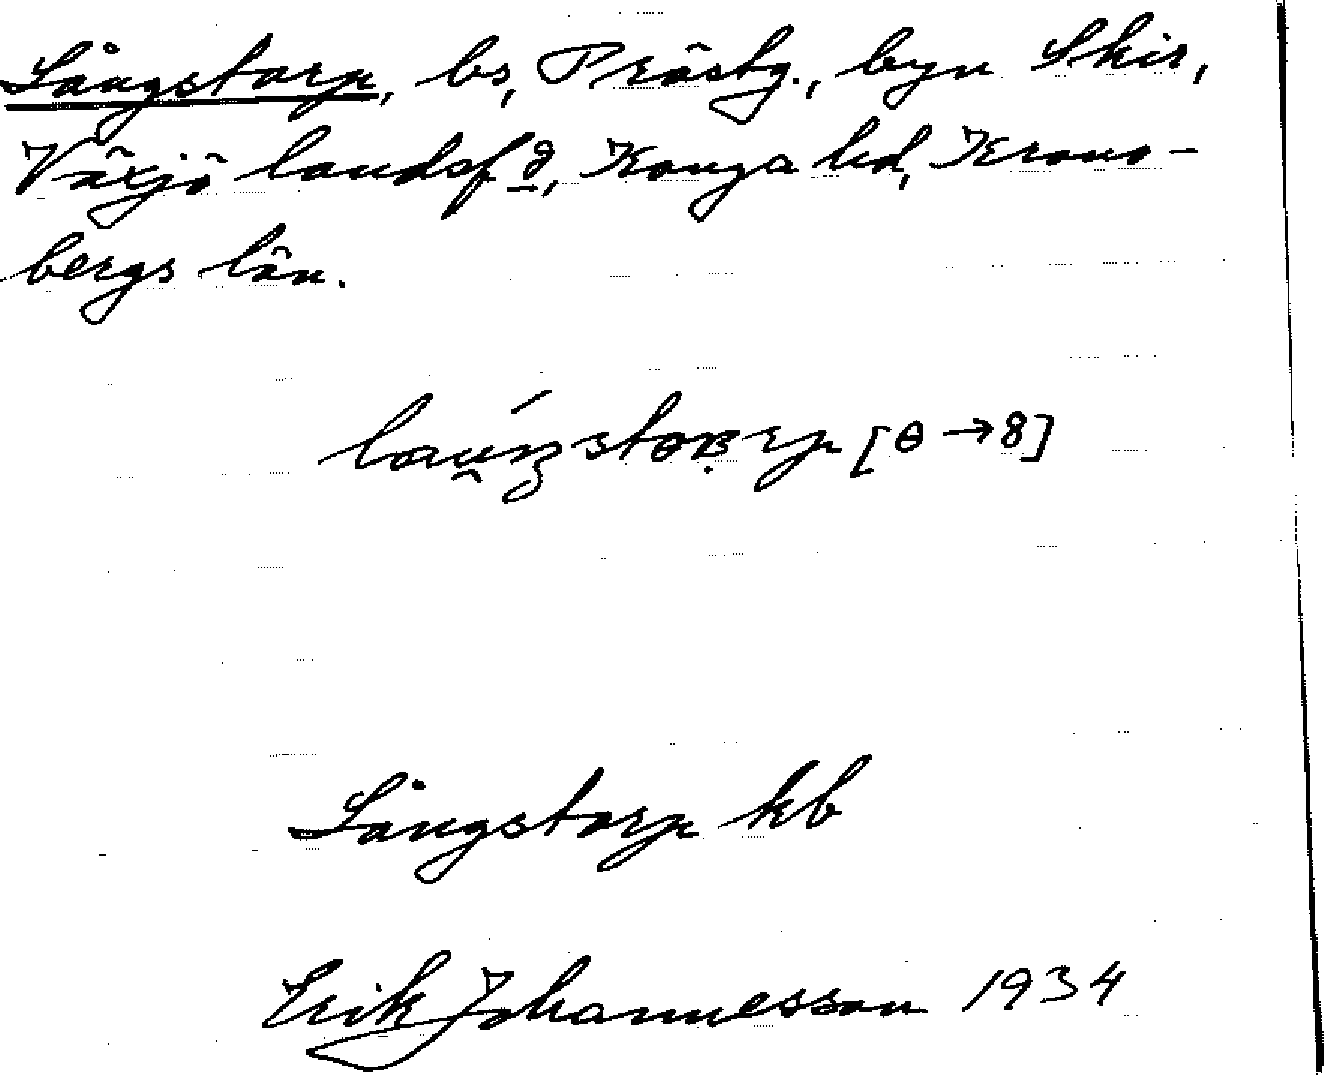 Långstorp, bs, Prästg., byn Skir,
Växjö landsf d, Konga hd, Krono-
bergs län.
[θ → 8]
Långstorp kb
Erik Johannesson 1934